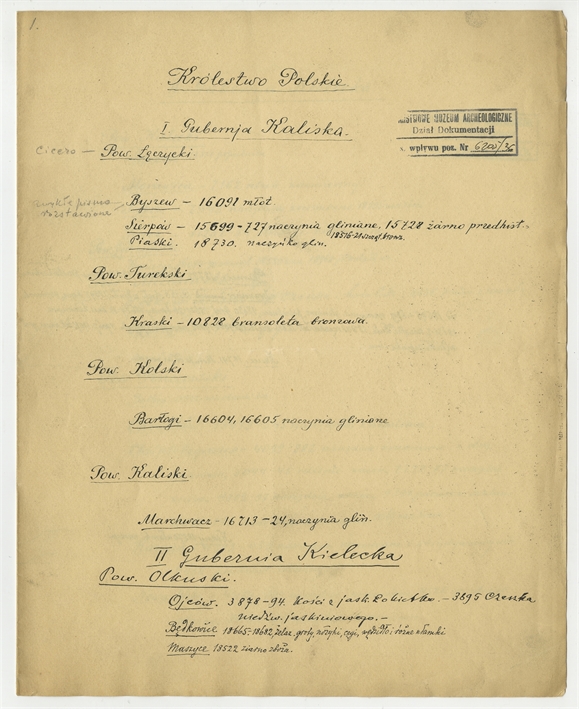 1.
Królestwo Polskie
I Gubernja Kaliska.
PAŃSTWOWE MUZEUM ARCHEOLOGICZNE
Dział Dokumentacji
wpływu poz. Nr 6200/36
Cicero — Pow. Łęczycki.
zwykłe pismo
rozstawione
Byszew — 16091 młot.
Sierpów — 15699-727 naczynia gliniane, 15728 żarno przedhist.
Piaski. 18730. naczyńko glin.
Pow. Turekski
Kraski — 10828 bransoleta bronzowa.
Pow. Kolski
Barłogi — 16604, 16605 naczynia gliniane
Pow. Kaliski.
Marchwacz — 16713-24, naczynia glin.
II Gubernia Kielecka
Pow. Olkuski.
Ojców. 3878-94. Kości z jask. Łokietka. — 3895 Czaszka
niedźw. jaskiniowego. —
Będkowice 18665-18682, żelaz. groty, nożyki, wędzidło i różne ułamki.
Maszyce 18522 ziarno zboża.